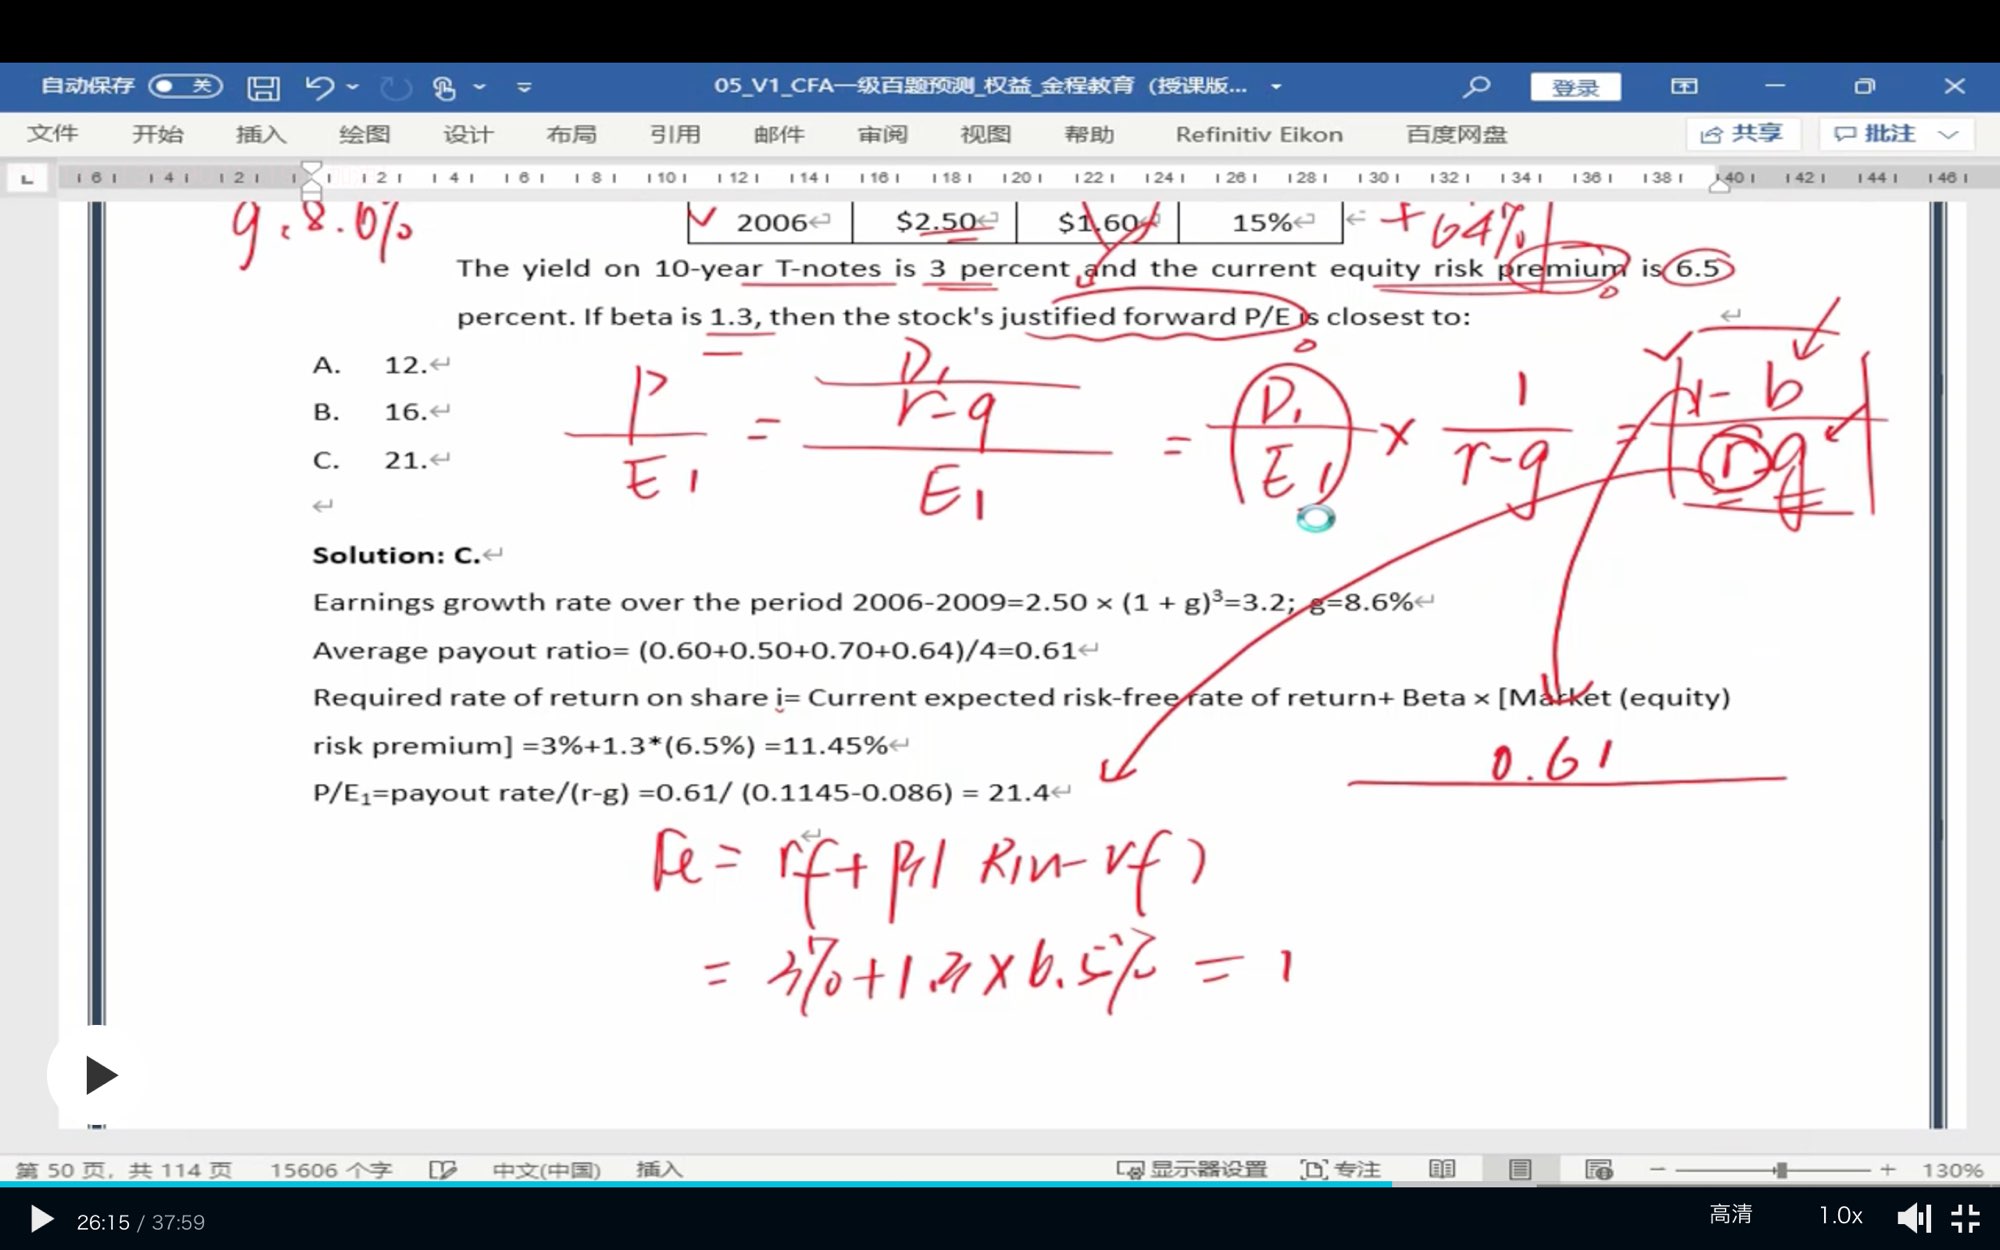 自动保存 关 05_V1_CFA一级百题预测_权益_金程教育（授课版... 登录
文件 开始 插入 绘图 设计 布局 引用 邮件 审阅 视图 帮助 Refinitiv Eikon 百度网盘 共享 批注
6 4 2 2 4 6 8 10 12 14 16 18 20 22 24 26 28 30 32 34 36 38 40 42 44 46
g: 8.6%
2006 $2.50 $1.60 15% + 64%
The yield on 10-year T-notes is 3 percent and the current equity risk premium is 6.5
percent. If beta is 1.3, then the stock's justified forward P/E is closest to:
A. 12.
B. 16.
C. 21.
P/E1 = D1/(r-g)/E1 = D1/E1 × 1/r-g = 1-b/r-g
Solution: C.
Earnings growth rate over the period 2006-2009=2.50 × (1 + g)³=3.2; g=8.6%
Average payout ratio= (0.60+0.50+0.70+0.64)/4=0.61
Required rate of return on share i= Current expected risk-free rate of return+ Beta × [Market (equity)
risk premium] =3%+1.3*(6.5%) =11.45%
0.61
P/E₁=payout rate/(r-g) =0.61/ (0.1145-0.086) = 21.4
re = rf + β( Rm - rf )
= 3% + 1.3 × 6.5% = 1
第 50 页，共 114 页 15606 个字 中文(中国) 插入 显示器设置 专注 130%
26:15 / 37:59 高清 1.0x